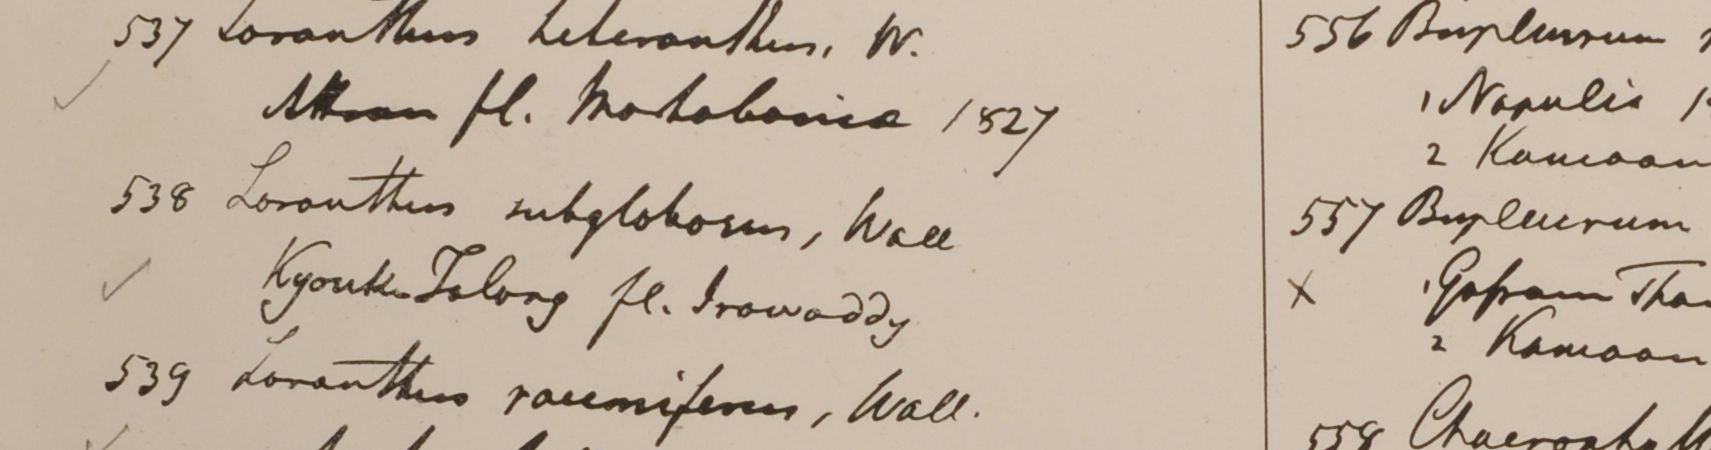 537 Loranthus heteranthus, W.
Attran fl. Martabanica 1827
538 Loranthus subglobosus, Wall
Kyouk Talong fl. Irawaddy
539 Loranthus racemiferus, Wall.
556 Bupleurum
1 Napulia
2 Kamaon
557 Bupleurum
1 Gosam Than
2 Kamaon
558 Chaerophyll